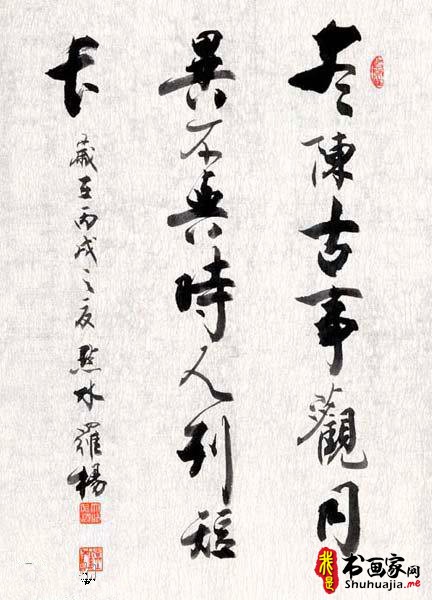 陳古事觀同
異不與時人列短
長 歲在丙戌之夏 點水 羅楊
我是
书画家网
Shuhuajia.me